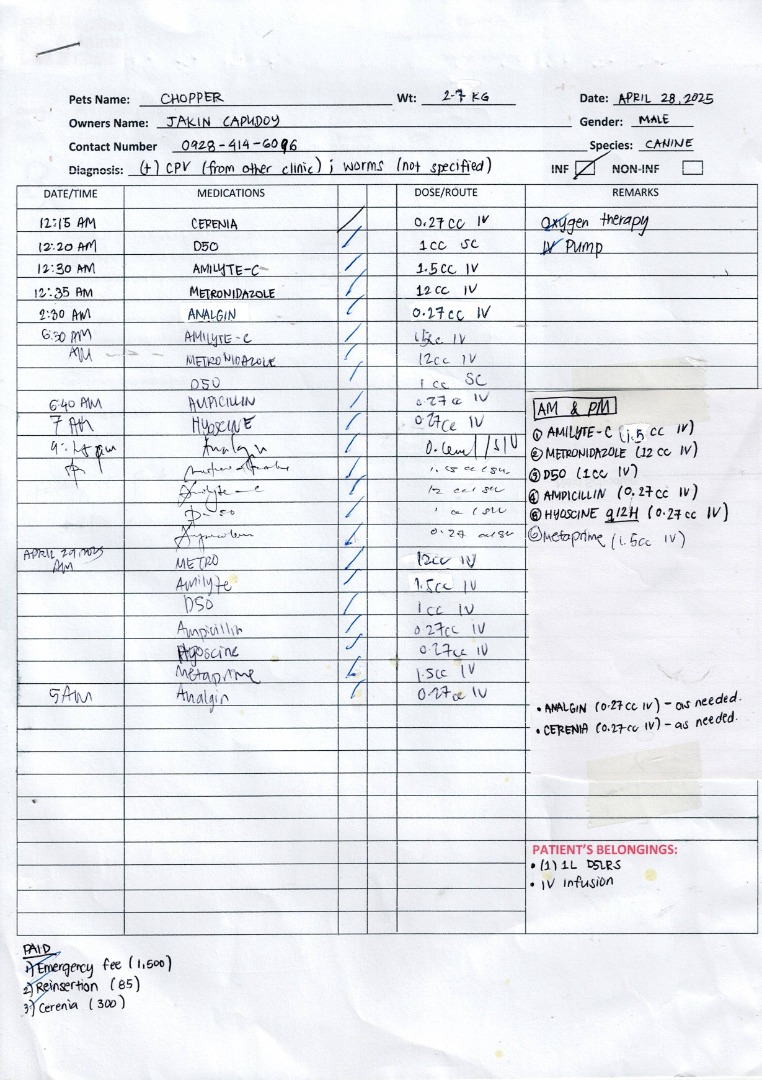 Pets Name: CHOPPER Wt: 2.7 KG Date: APRIL 28, 2025
Owners Name: JAKIN CAPUDOY Gender: MALE
Contact Number 0928-414-6096 Species: CANINE
Diagnosis: (+) CPV (from other clinic) ; worms (not specified) INF NON-INF
DATE/TIME MEDICATIONS DOSE/ROUTE REMARKS
12:15 AM CERENIA 0.27 cc IV Oxygen therapy
12:20 AM D50 1 cc SC IV Pump
12:30 AM AMILYTE-C 1.5 cc IV
12:35 AM METRONIDAZOLE 12 cc IV
2:30 AM ANALGIN 0.27 cc IV
6:30 AM AMILYTE-C 1.5cc IV
AM METRONIDAZOLE 12cc IV
D50 1 cc SC
6:40 AM AMPICILLIN 0.27 cc IV
7 AM HYOSCINE 0.27cc IV
Analgin
Amilyte-C 12 cc
D50
0.27
APRIL 29, 2025
AM METRO 12cc IV
Amilyte 1.5cc IV
D50 1 cc IV
Ampicillin 0.27cc IV
Hyoscine 0.27cc IV
Metaprime 1.5cc IV
5AM Analgin 0.27cc IV
AM & PM
① AMILYTE-C (1.5 cc IV)
② METRONIDAZOLE (12 cc IV)
③ D50 (1cc IV)
④ AMPICILLIN (0.27 cc IV)
⑤ HYOSCINE q12H (0.27 cc IV)
⑥ Metaprime (1.5cc IV)
• ANALGIN (0.27 cc IV) - as needed.
• CERENIA (0.27 cc IV) - as needed.
PATIENT'S BELONGINGS:
• (1) 1L D5LRS
• IV infusion
PAID
1) Emergency fee (1,500)
2) Reinsertion (85)
3) Cerenia (300)